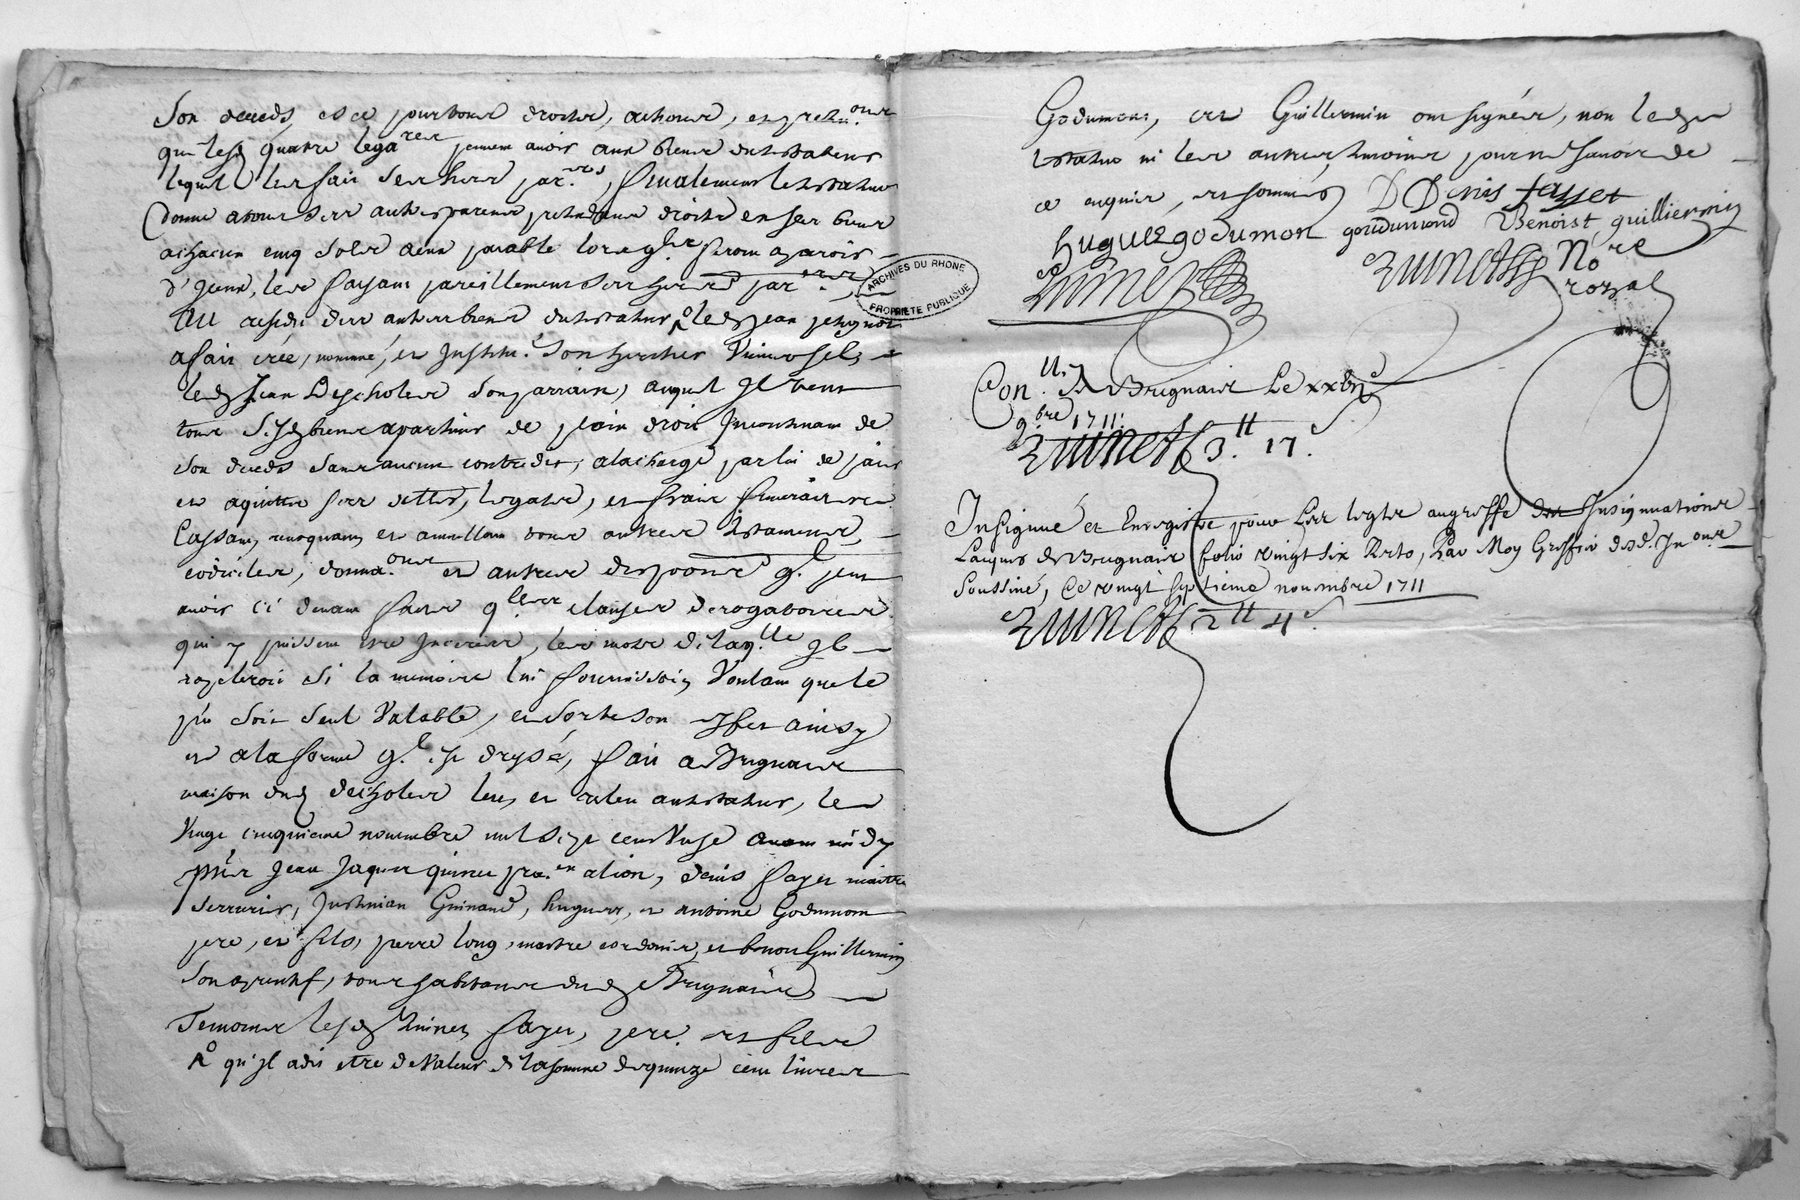 Son decedz, et ce pour tous droitz, actions, et preten.ons
que lesd quatre lega.res peuvent avoir aux biens dud testateur
lequel les fait ses hers par.ers, finalement le testateur
donne a tous ses autres parens pretendans droits en ses biens
a chacun cinq solz aeux payable lors q'ilz feront aparois
d'Iceux, les faisant pareillement ses hers par.ers
Au residu des autres biens dud testateur led Jean
a fait, crée, nommé, et Institué Son heritier Universel,
led Jean Descholes Son parrain, auquel Il veut
tous Sesd biens apartenir de plain droit Incontinant
Son decedz sans aucun contredit, a la charge par lui de paier
et aquitter ses dettes, legatz, et fraix funeraires
Cassant, revoquant et annullant tous autres testamens,
codiciles, dona.ons et autres dispo.ons q'l peut
avoir ci devant faites q.lles clauses derogatoires
qui y puissent etre Inserées, les motz de laq.lle Il
rapeleroit Si la memoire lui fournissoit, Voulant que le
pnt Soit Seul Valable, et Sorte son effet ainsy
et a la forme q'l est dressé, fait a Brignais
maison dud descholes leu, et releu au testateur, le
Vingt cinquieme novembre mil Sept cent Unze avant midy
pnts Jean Jaques quinet pra.en a lion, denis fayet maitre
Serrurier, Justinian Guinand, hugues, et antoine Godumon
pere, et fils, pierre long, maitre cordonier, et benoit Guillermin
Son aprentif, tous habitans dud Brignais,
Temoins lesd quinet, fayet, pere et fils
Ro qu'Il a dit etre de Valeur de la Somme de quinze cent livres
Godumons, et Guillermin ont signés, non led
testateur ni les autres temoins pour ne Savoir de
ce enquis, et sommés D Denis fayet
hugues godumon goudumond Benoist guilliermin
quinet quinet No.re
royal
ARCHIVES DU RHONE
PROPRIÉTÉ PUBLIQUE
Con.lle A Brignais Le xxvne
9.bre 1711.
quinet 3.tt 17.s
Insignué et Enregistré pour Les legtz au greffe des Insignuations
Laiques de Brignais folio vingt six Recto, Par Moy Greffier desd. In.ons
Soussiné, Ce vingt septieme novembre 1711
quinet 2tt 4s